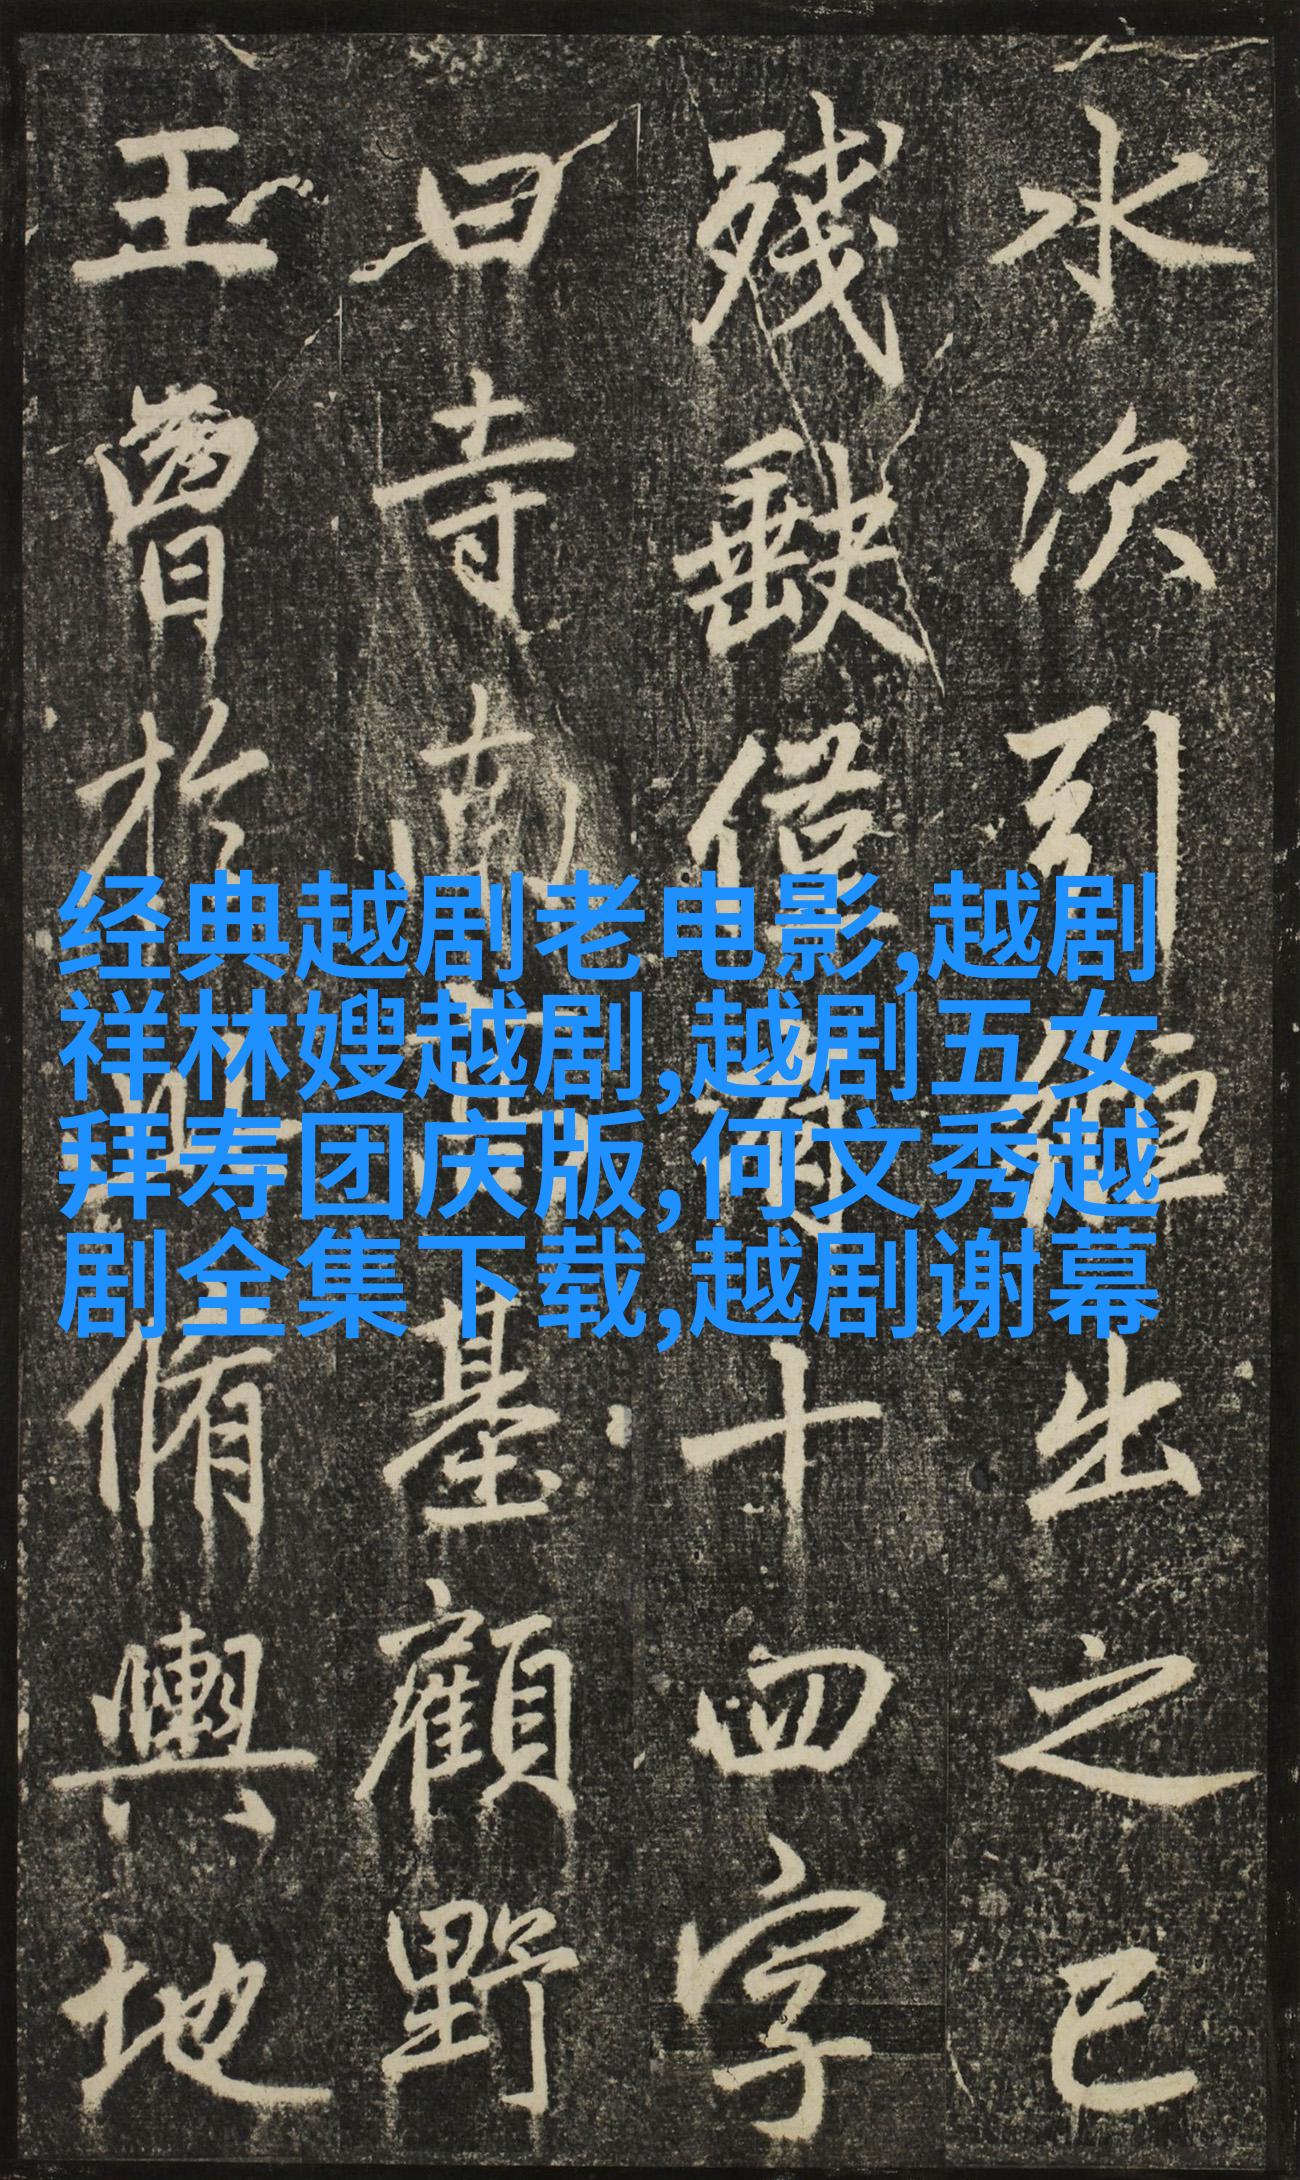 水次引出之已
残缺僅有十四字
曰寺南高基顧野
王曾於此脩輿地
经典越剧老电影,越剧
祥林嫂越剧,越剧五女
拜寿团庆版,何文秀越
剧全集下载,越剧谢幕